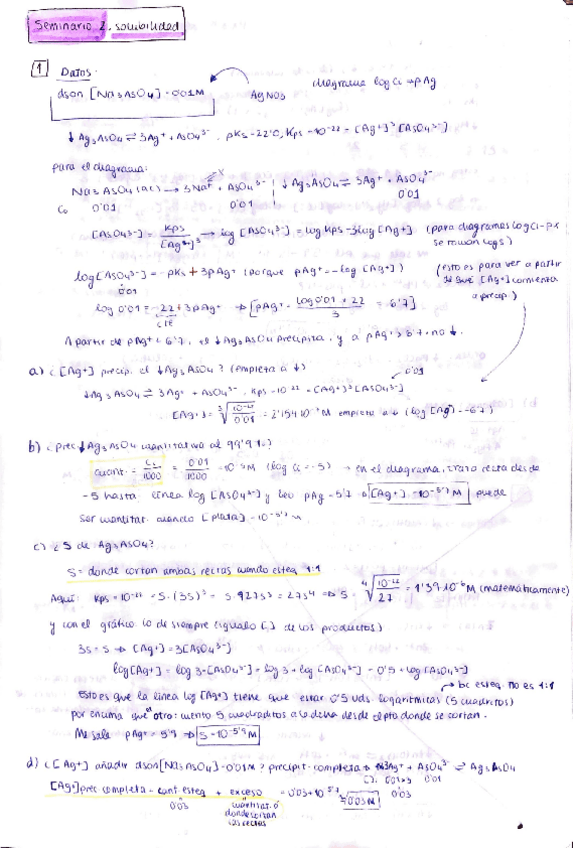 Seminario 2. solubilidad
1 Datos.
dson [Na3AsO4] = 0'01M AgNO3 diagrama log Ci - pAg
↓Ag3AsO4 ⇌ 3Ag+ + AsO4³⁻. pKs = 22'0, Kps = 10⁻²² = [Ag+]³[AsO4³⁻]
para el diagrama:
Na3AsO4 (ac) → 3Na+ + AsO4³⁻ ¦ ↓Ag3AsO4 ⇌ 3Ag+ + AsO4³⁻
Co 0'01 0'01 0'01
[AsO4³⁻] = Kps/[Ag+]³ → log [AsO4³⁻] = log Kps - 3log [Ag+] (para diagramas log Ci - px
se logs)
log [AsO4³⁻] = -pKs + 3pAg+ (porque pAg+ = -log [Ag+]) (esto es para ver a partir
0'01 de qué [Ag+] comienza
log 0'01 = -22 + 3pAg+ → [pAg+ = log 0'01 + 22 / 3 = 6'7] a precip.)
cte
A partir de pAg+ < 6'7, el ↓Ag3AsO4 precipita, y a pAg+ > 6'7 no ↓.
a) ¿[Ag+] precip. el ↓Ag3AsO4? (empieza a ↓) 0'01
↓Ag3AsO4 ⇌ 3Ag+ + AsO4³⁻. Kps = 10⁻²² = [Ag+]³[AsO4³⁻]
[Ag+] = ∛(10⁻²²/0'01) = 2'154·10⁻⁷ M empieza a ↓ (log [Ag+] = -6'7)
b) ¿prec ↓Ag3AsO4 cuantitativa al 99'9%?
cuant. = Ci/1000 = 0'01/1000 = 10⁻⁵ M (log Ci = -5) → en el diagrama, trazo recta desde
-5 hasta línea log [AsO4³⁻] y leo pAg = 5'7 → [Ag+] = 10⁻⁵'⁷ M puede
ser cuantitat. cuando [plata] = 10⁻⁵'⁷ M
c) ¿S de Ag3AsO4?
S = donde cortan ambas rectas cuando esteq 1:1
Aquí: Kps = 10⁻²² = S·(3S)³ = S·27S³ = 27S⁴ ⇒ S = ∜(10⁻²²/27) = 1'39·10⁻⁶ M (matemáticamente)
y con el gráfico (o de siempre (igualo [ ] de los productos)
3S = S → [Ag+] = 3[AsO4³⁻]
log [Ag+] = log 3·[AsO4³⁻] = log 3 + log [AsO4³⁻] = 0'5 + log [AsO4³⁻]
bc esteq. no es 1:1
Esto es que la línea log [Ag+] tiene que estar 0'5 uds. logarítmicas (5 cuadritos)
por encima que el otro: cuento 5 cuadraditos a la dcha desde el pto donde se cortan.
Me sale pAg+ = 5'9 ⇒ S = 10⁻⁵'⁹ M
d) ¿[Ag+] añadir dson [Na3AsO4] = 0'01M? precipit. completa → 3Ag+ + AsO4³⁻ ⇌ Ag3AsO4
0'01×3 0'01
[Ag+] prec. completa = cant. esteq + exceso = 0'03 + 10⁻⁵'⁷ ≈ 0'03 M 0'03
0'03 cuantitat. o
donde cortan
las rectas